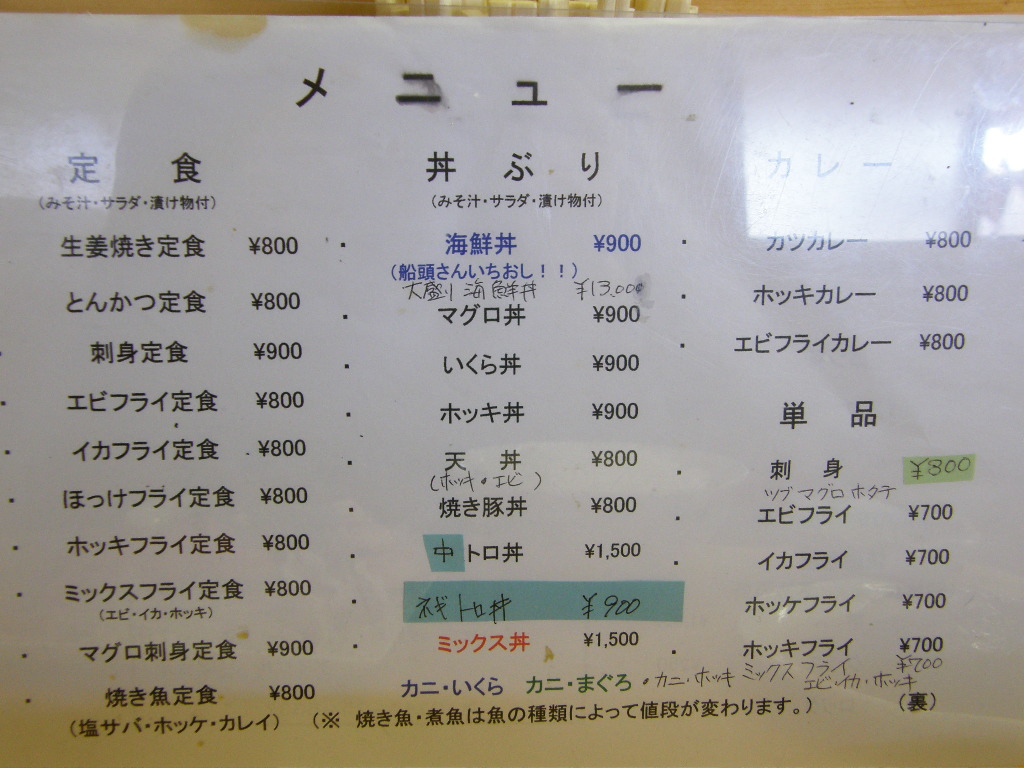 メニュー
定食
(みそ汁・サラダ・漬け物付)
生姜焼き定食 ¥800
とんかつ定食 ¥800
刺身定食 ¥900
エビフライ定食 ¥800
イカフライ定食 ¥800
ほっけフライ定食 ¥800
ホッキフライ定食 ¥800
ミックスフライ定食 ¥800
(エビ・イカ・ホッキ)
マグロ刺身定食 ¥900
焼き魚定食 ¥800
(塩サバ・ホッケ・カレイ)
丼ぶり
(みそ汁・サラダ・漬け物付)
海鮮丼 ¥900
(船頭さんいちおし!!)
大盛り海鮮丼 ¥13.000
マグロ丼 ¥900
いくら丼 ¥900
ホッキ丼 ¥900
天丼 ¥800
(ホッキ・エビ)
焼き豚丼 ¥800
中トロ丼 ¥1,500
ネギトロ丼 ¥900
ミックス丼 ¥1,500
カニ・いくら カニ・まぐろ ・カニ・ホッキ
(※ 焼き魚・煮魚は魚の種類によって値段が変わります。)
カレー
カツカレー ¥800
ホッキカレー ¥800
エビフライカレー ¥800
単品
刺身 ¥800
ツブ マグロ ホタテ
エビフライ ¥700
イカフライ ¥700
ホッケフライ ¥700
ホッキフライ ¥700
ミックスフライ ¥700
エビ・イカ・ホッキ
(裏)